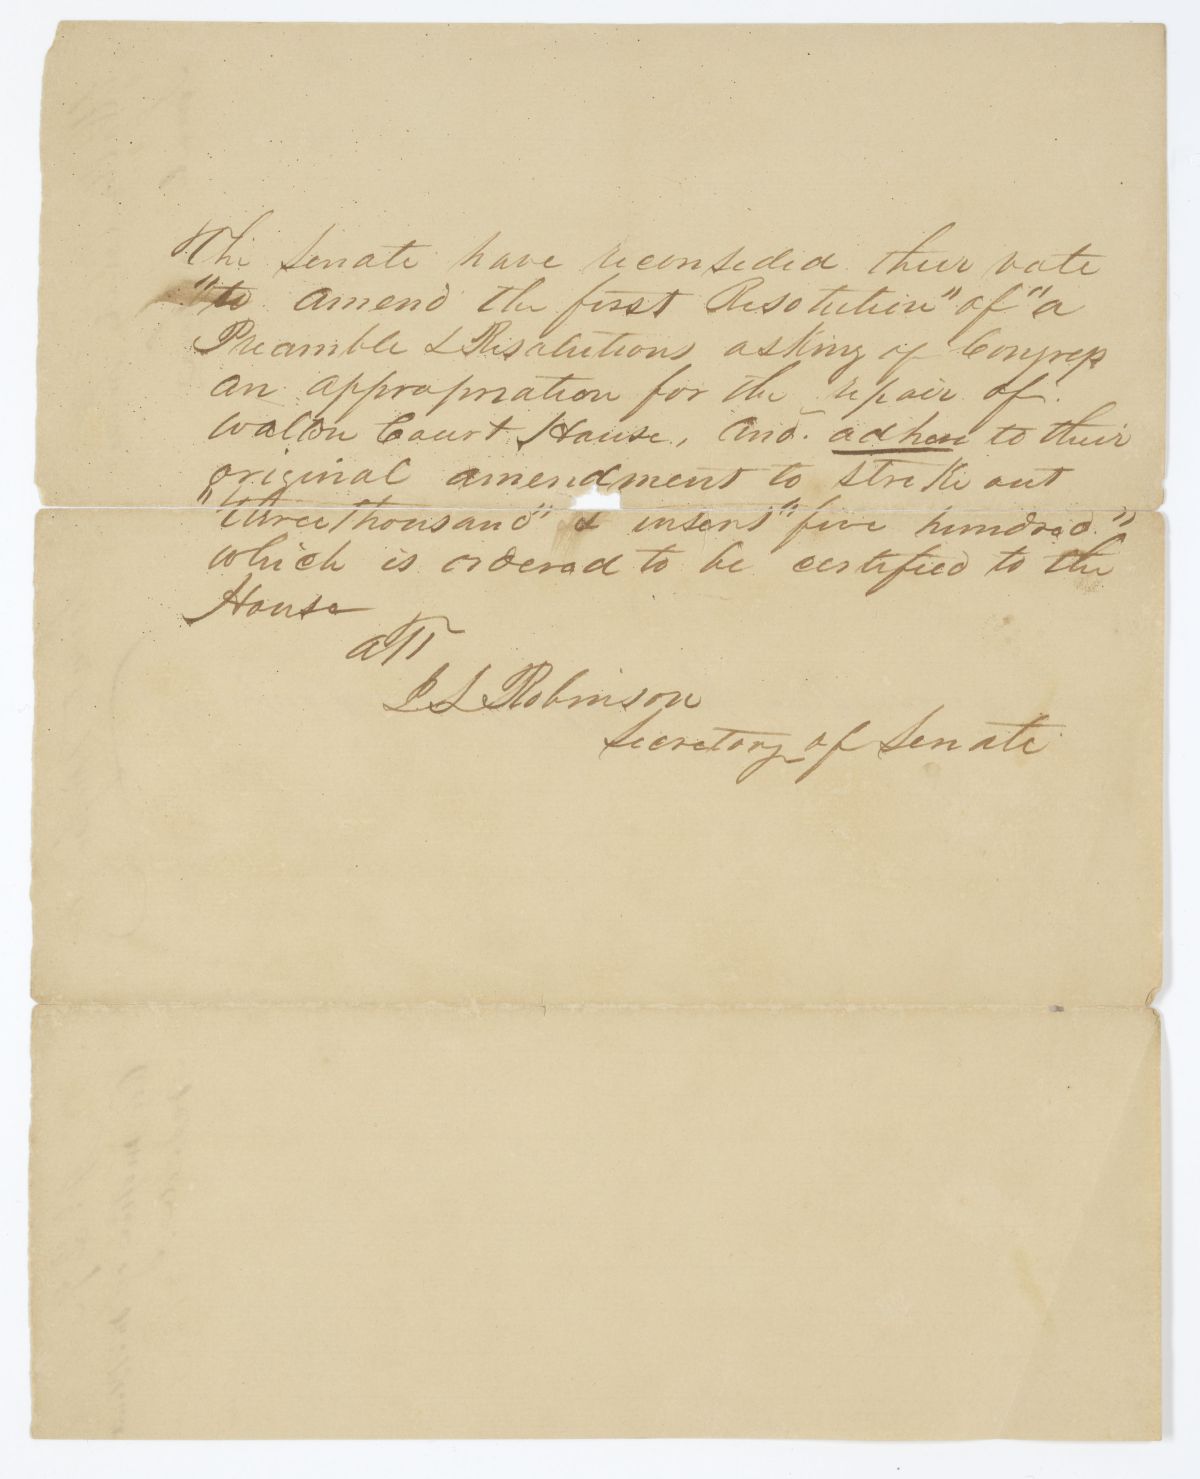 The Senate have reconseded their vote
"to amend the first Resolution" of "a
Preamble & Resolutions asking of Congress
an appropriation for the repair of
Walton Court House, and. adhere to their
original amendment to strike out
"three thousand" & insert "five hundred"
which is ordered to be certified to the
House
att
L Robinson
Secretary of Senate